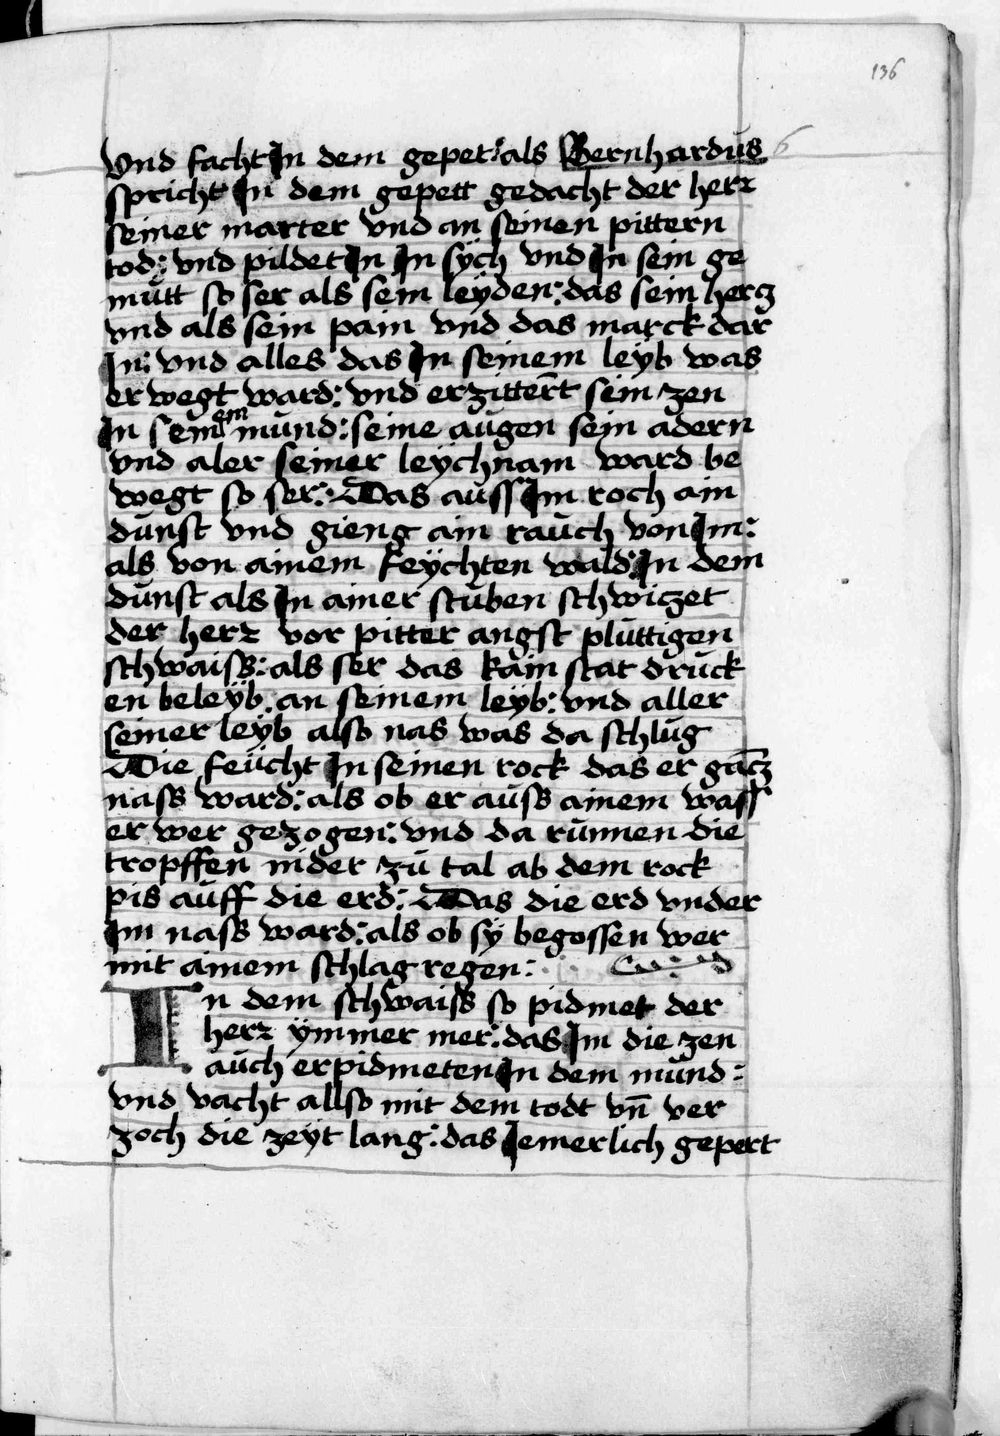 136
vnd facht In dem gepet: als Bernhardus 6
spricht In dem gepett gedacht der herr
seiner marter vnd an seinen pittern
tod: vnd pildet In In sÿch vnd In sein ge
mütt so ser als sein leÿden: das sein hercz
vnd als sein pain vnd das marck dar
In: vnd alles das In seinem leÿb was
er wegt ward: vnd erzittert sein zen
In seinem mund: seine augen sein adern
vnd aler seiner leÿchnam ward be
wegt so ser: Das auss Im roch ain
dunst vnd gieng ain rauch von Im:
als von ainem feÿchten wald: In dem
dunst als In ainer stuben schwiczet
der herr vor pitter angst pluttigen
schwaiss: als ser das kain stat druck
en beleÿb. an seinem leÿb: vnd aller
seiner leÿb also nas was da schlug
Die feücht In seinen rock das er gācz
nass ward: als ob er auss ainem wass
er wer gezogen: vnd da runnen die
tropffen nider zu tal ab dem rock
pis auff die erd: Das die erd vnder
Im nass ward: als ob sÿ begossen wer
mit ainem schlag regen:
In dem schwaiss so pidmet der
herr ÿmmer mer: das Im die zen
auch erpidmeten In dem mund:
vnd vacht allso mit dem todt vn̄ ver
zoch die zeÿt lang: das Jemerlich gepert